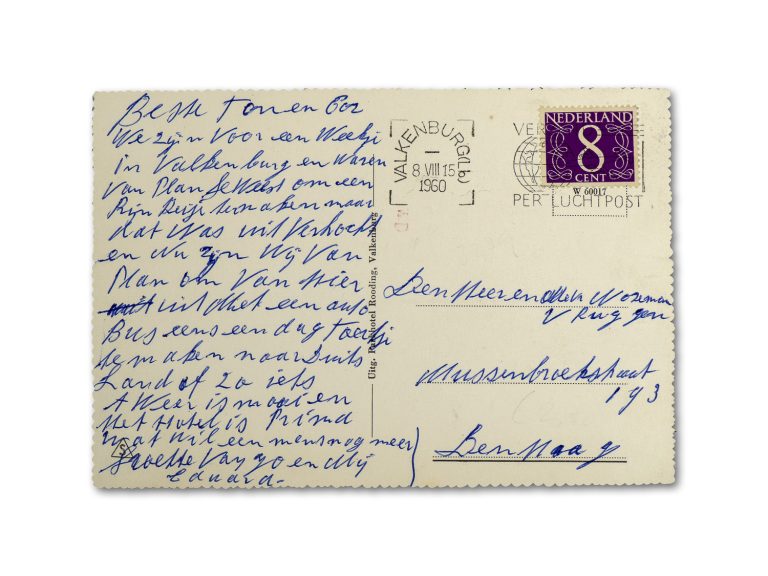 Beste Ton en Cor
We zijn voor een Weekje
in Valkenburg en Waren
Van Plan geweest om een
Rijn Reisje te maken maar
dat Was uitverkocht
en Nu zijn Wij Van
Plan om Van Hier
uit Met een auto
Bus eens een dag Toertje
te maken naar Duits
Land of zo iets
t Weer is mooi en
Het Hotel is Prima
Wat wil een mens nog meer
Groetjes Van en Mij
Eduard.
Uitg. Parkhotel Rooding, Valkenburg
VALKENBURG (Lb)
8 VIII 15
1960
NEDERLAND
8
CENT
W 60017
PER LUCHTPOST
Den Heeren
V Ruggen
Mussenbroekstraat
193
Den Haag